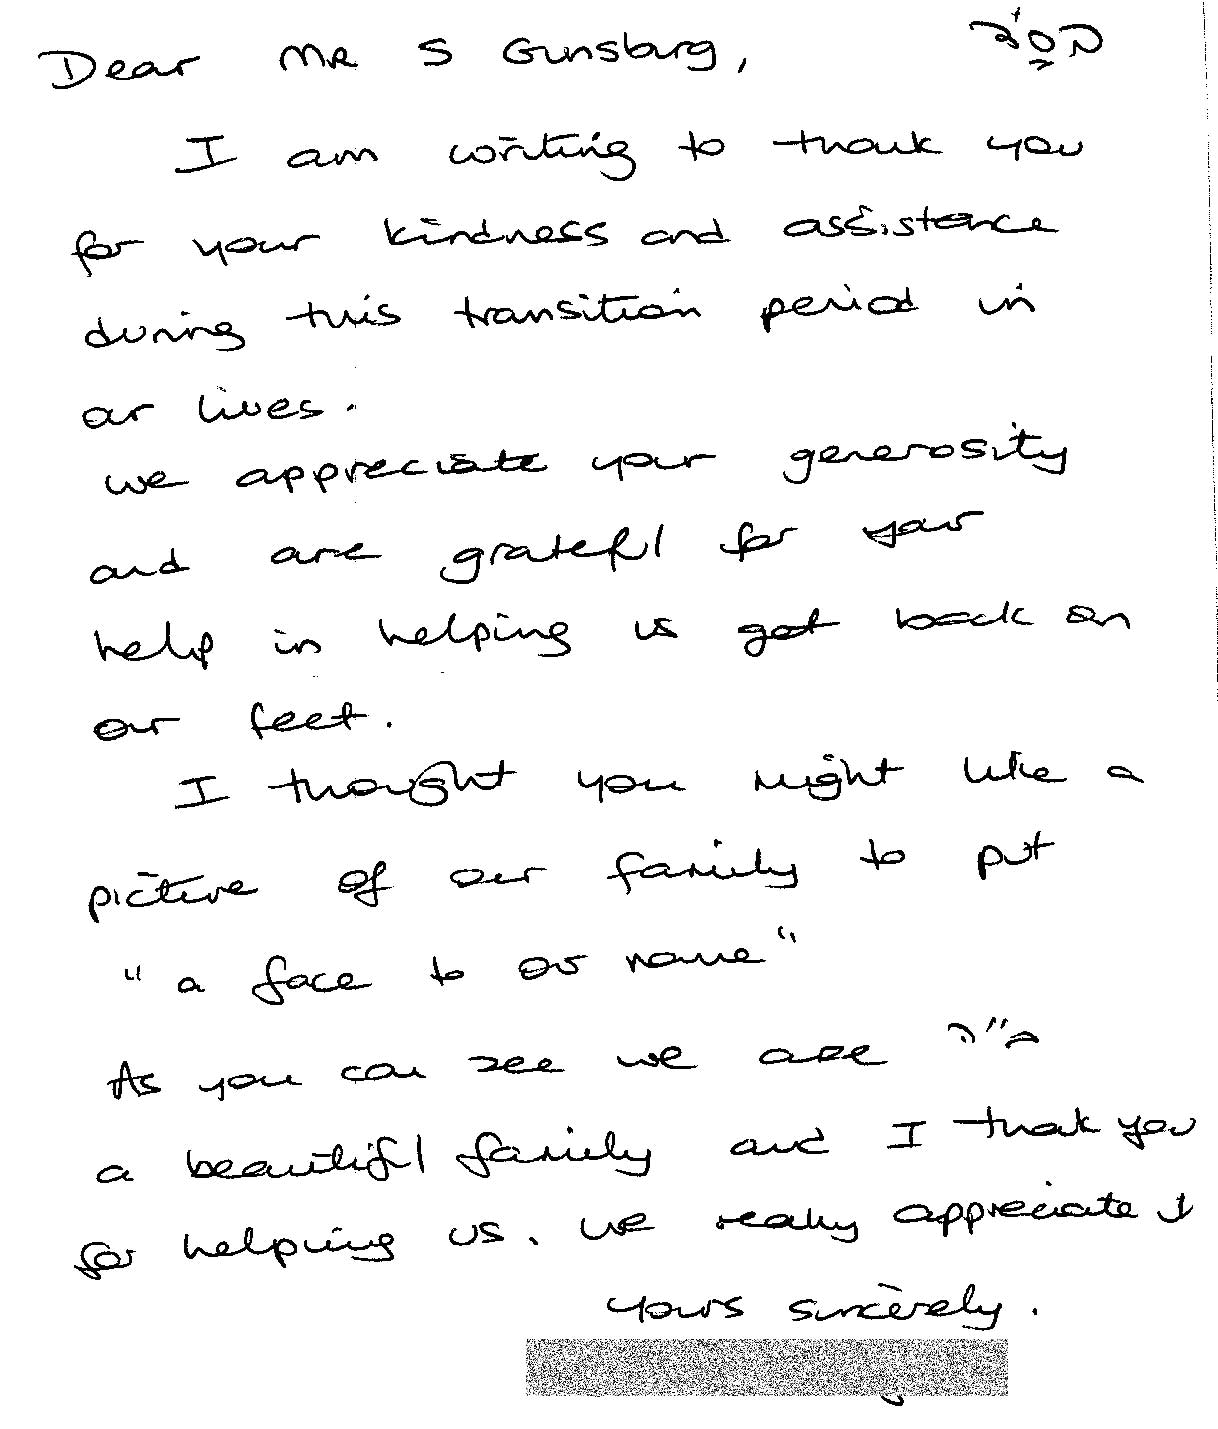 בס"ד
Dear MR S Gunsburg,
I am writing to thank you
for your kindness and assistance
during this transition period in
our lives.
we appreciate your generosity
and are grateful for your
help in helping us get back on
our feet.
I thought you might like a
picture of our family to put
"a face to our name"
As you can see we are ב"ה
a beautiful family and I thank you
for helping us. we really appreciate it
yours sincerely.